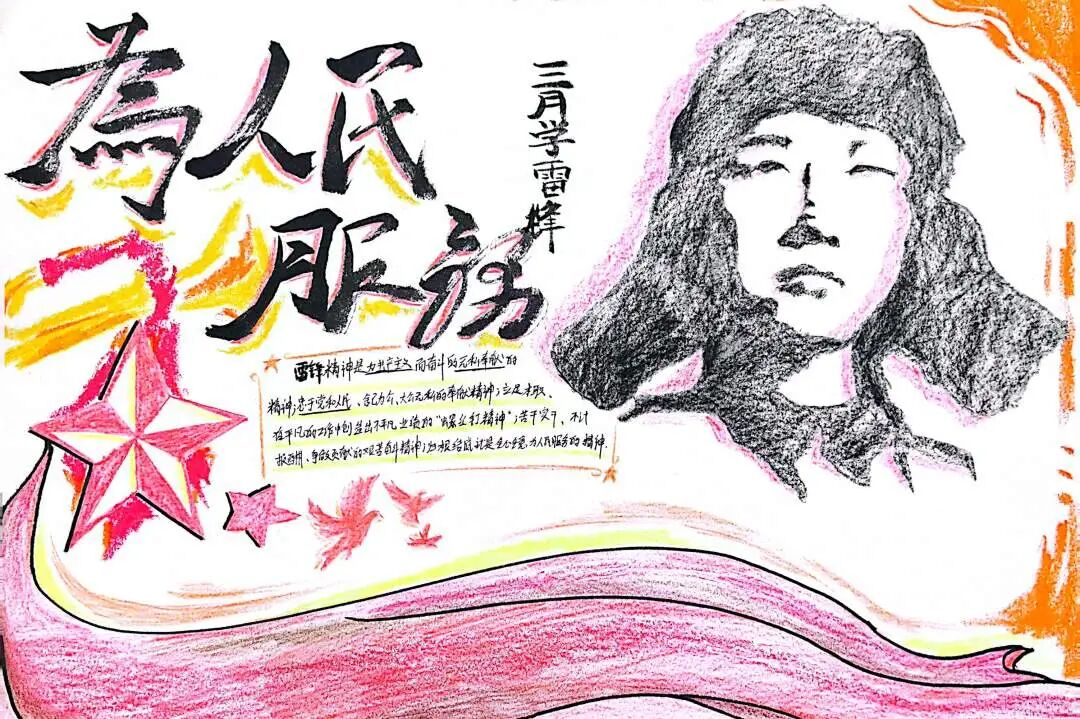 為人民
服務
三月学雷锋
雷锋精神是为共产主义而奋斗的无私奉献的
精神;忠于党和人民、舍己为公、大公无私的奉献精神;立足本职、
在平凡的工作中创造出不凡业绩的“螺丝钉精神”;苦干实干、不计
报酬、争做贡献的艰苦奋斗精神;归根结底就是全心全意为人民服务的精神.